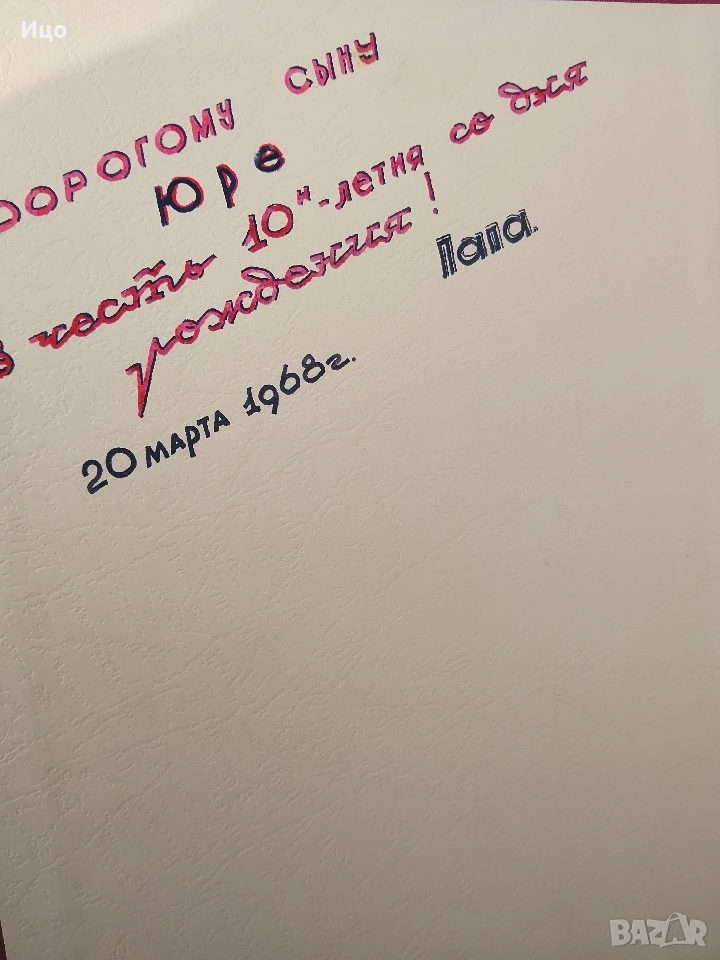 Ицо
ДОРОГОМУ СЫНУ
Юре
в честь 10и-летия со дня
рождения!
Папа.
20 МАРТА 1968г.
BAZAR